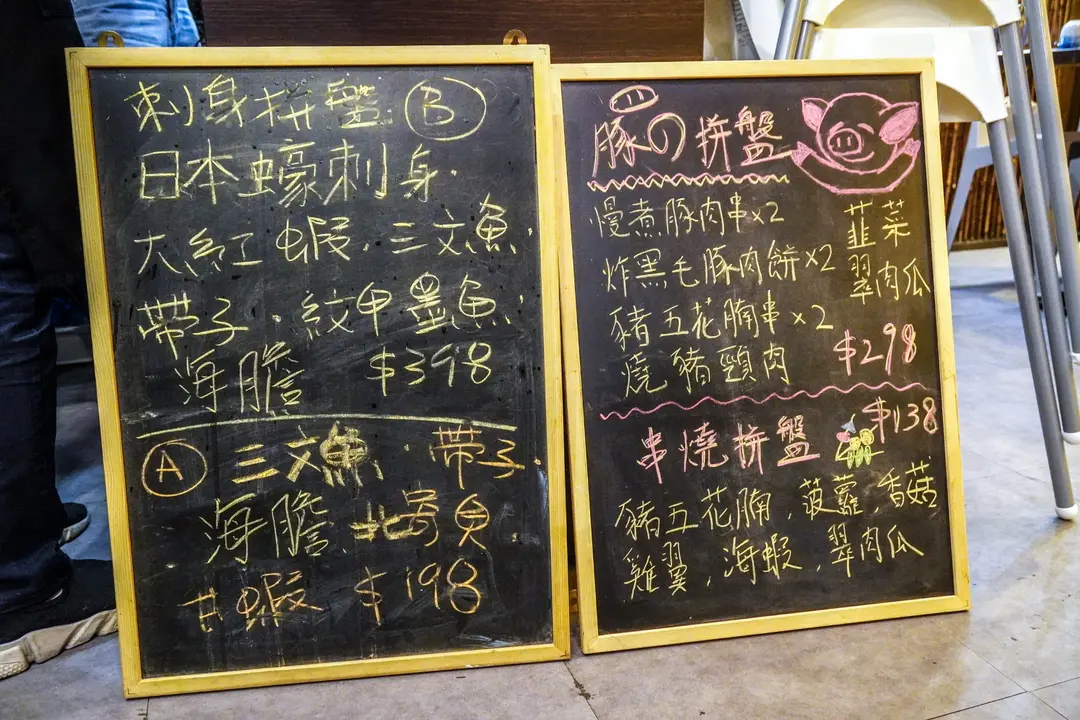 刺身拼盤 B
日本蠔刺身.
大紅蝦.三文魚.
帶子.紋甲墨魚.
海膽 $398
A 三文魚.帶子.
海膽.北寄貝
甘蝦 $198
豚の拼盤
慢煮豚肉串x2
炸黑毛豚肉餅x2
豬五花腩串x2
燒豬頸肉
韮菜
翠肉瓜
$298
串燒拼盤 $138
豬五花腩,菠蘿,香菇
雞翼,海蝦,翠肉瓜